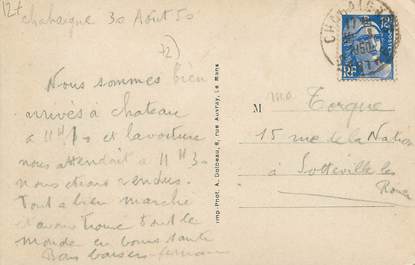 12+
chahaigne 30 Aout 50
72)
Nous sommes bien
arrivés à chateau
à 11 H 10 et la voiture
nous attendait à 11 H 30
nous étions rendus.
Tout a bien marché
et avons trouvé tout le
monde en bonne santé
Bons baisers
Imp.-Phot. A. Dolbeau, 6, rue Auvray, Le Mans
M me Torque
15 rue de la Nation
à Sotteville les
Rouen
CHAHAIGNES
RF